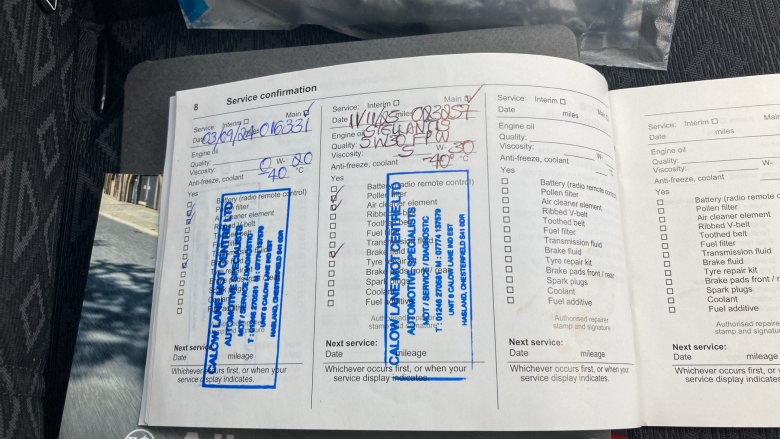 8 Service confirmation
Service: Interim Main
Date 03/09/24 016331 miles
Engine oil
Quality:
Viscosity: 0 W- 20
Anti-freeze, coolant -40 °C
Yes
Battery (radio remote control)
Pollen filter
Air cleaner element
Ribbed V-belt
Toothed belt
CALOW LANE MOT CENTRE LTD
AUTOMOTIVE SPECIALISTS
MOT / SERVICE / DIAGNOSTIC
T: 01246 270568 M: 07774 137579
UNIT 6 CALOW LANE IND EST
HASLAND, CHESTERFIELD S41 0DR
Next service:
Date mileage
Whichever occurs first, or when your
service display indicates.
Service: Interim Main
Date 11/11/25 023857
Engine oil STELLANTIS
Quality: 5W30 FPW
Viscosity: 5 W- 30
Anti-freeze, coolant -40° °C
Yes
Battery (radio remote control)
Pollen filter
Air cleaner element
Ribbed
Toothed
Fuel
Transmission fluid
Brake fluid
Tyre repair kit
Brake pads front / rear
Spark plugs
Coolant
Fuel additive
Authorised repairer
stamp and signature
CALOW LANE MOT CENTRE LTD
AUTOMOTIVE SPECIALISTS
MOT / SERVICE / DIAGNOSTIC
T: 01246 270568 M: 07774 137579
UNIT 6 CALOW LANE IND EST
HASLAND, CHESTERFIELD S41 0DR
Next service:
Date mileage
Whichever occurs first, or when your
service display indicates.
Service: Interim Main
Date miles
Engine oil
Quality:
Viscosity: W-
Anti-freeze, coolant °C
Yes
Battery (radio remote control)
Pollen filter
Air cleaner element
Ribbed V-belt
Toothed belt
Fuel filter
Transmission fluid
Brake fluid
Tyre repair kit
Brake pads front / rear
Spark plugs
Coolant
Fuel additive
Authorised repairer
stamp and signature
Next service:
Date mileage
Whichever occurs first, or when your
service display indicates.
Service: Interim
Date miles
Engine oil
Quality:
Viscosity:
Anti-freeze, coolant
Yes
Battery (radio remote
Pollen filter
Air cleaner element
Ribbed V-belt
Toothed belt
Fuel filter
Transmission fluid
Brake fluid
Tyre repair kit
Brake pads front /
Spark plugs
Coolant
Fuel additive
Authorised repairer
stamp and signature
Next service:
Date mileage
Whichever occurs first, or
service display indicates.